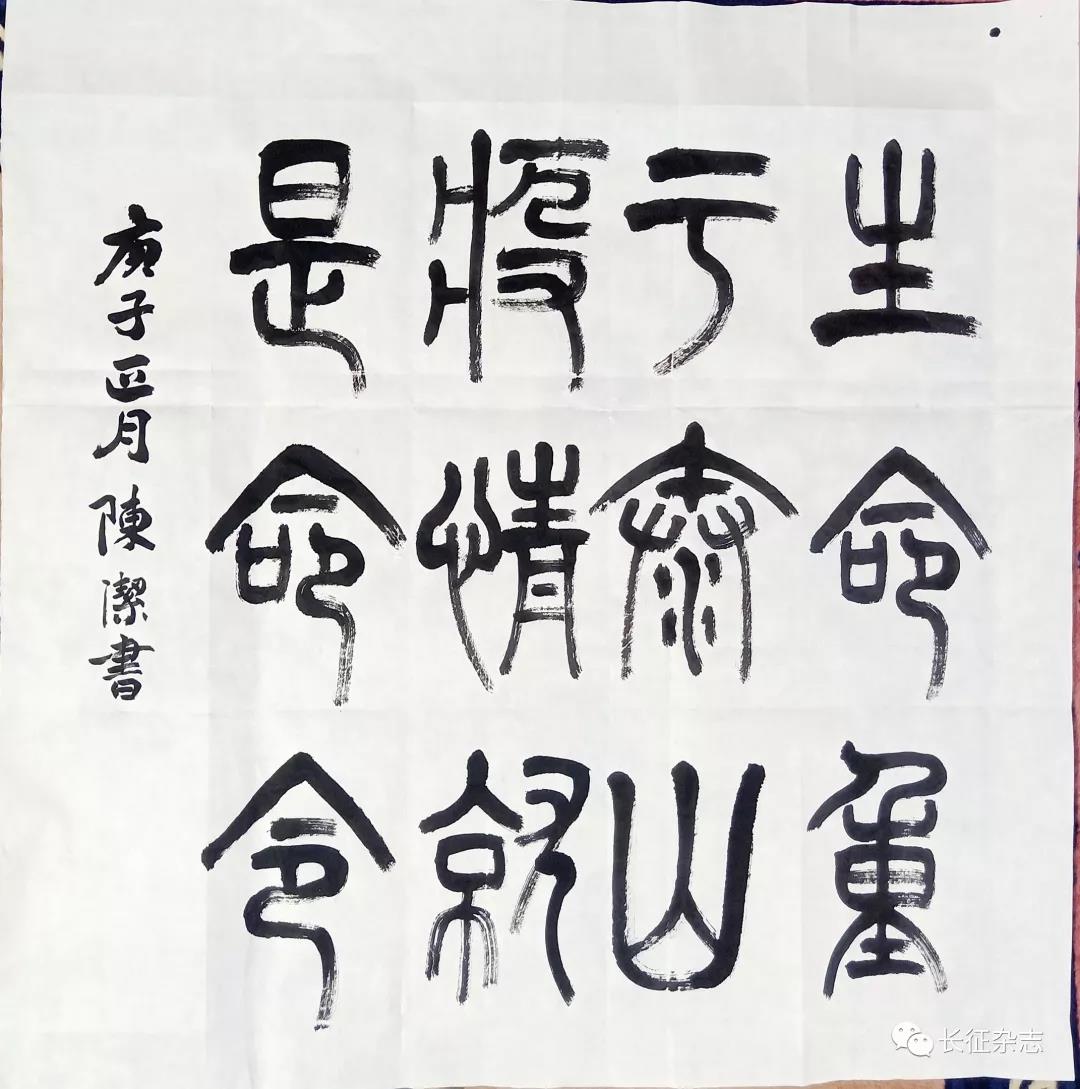 生命重
于泰山
疫情就
是命令
庚子正月 陳潔書
长征杂志